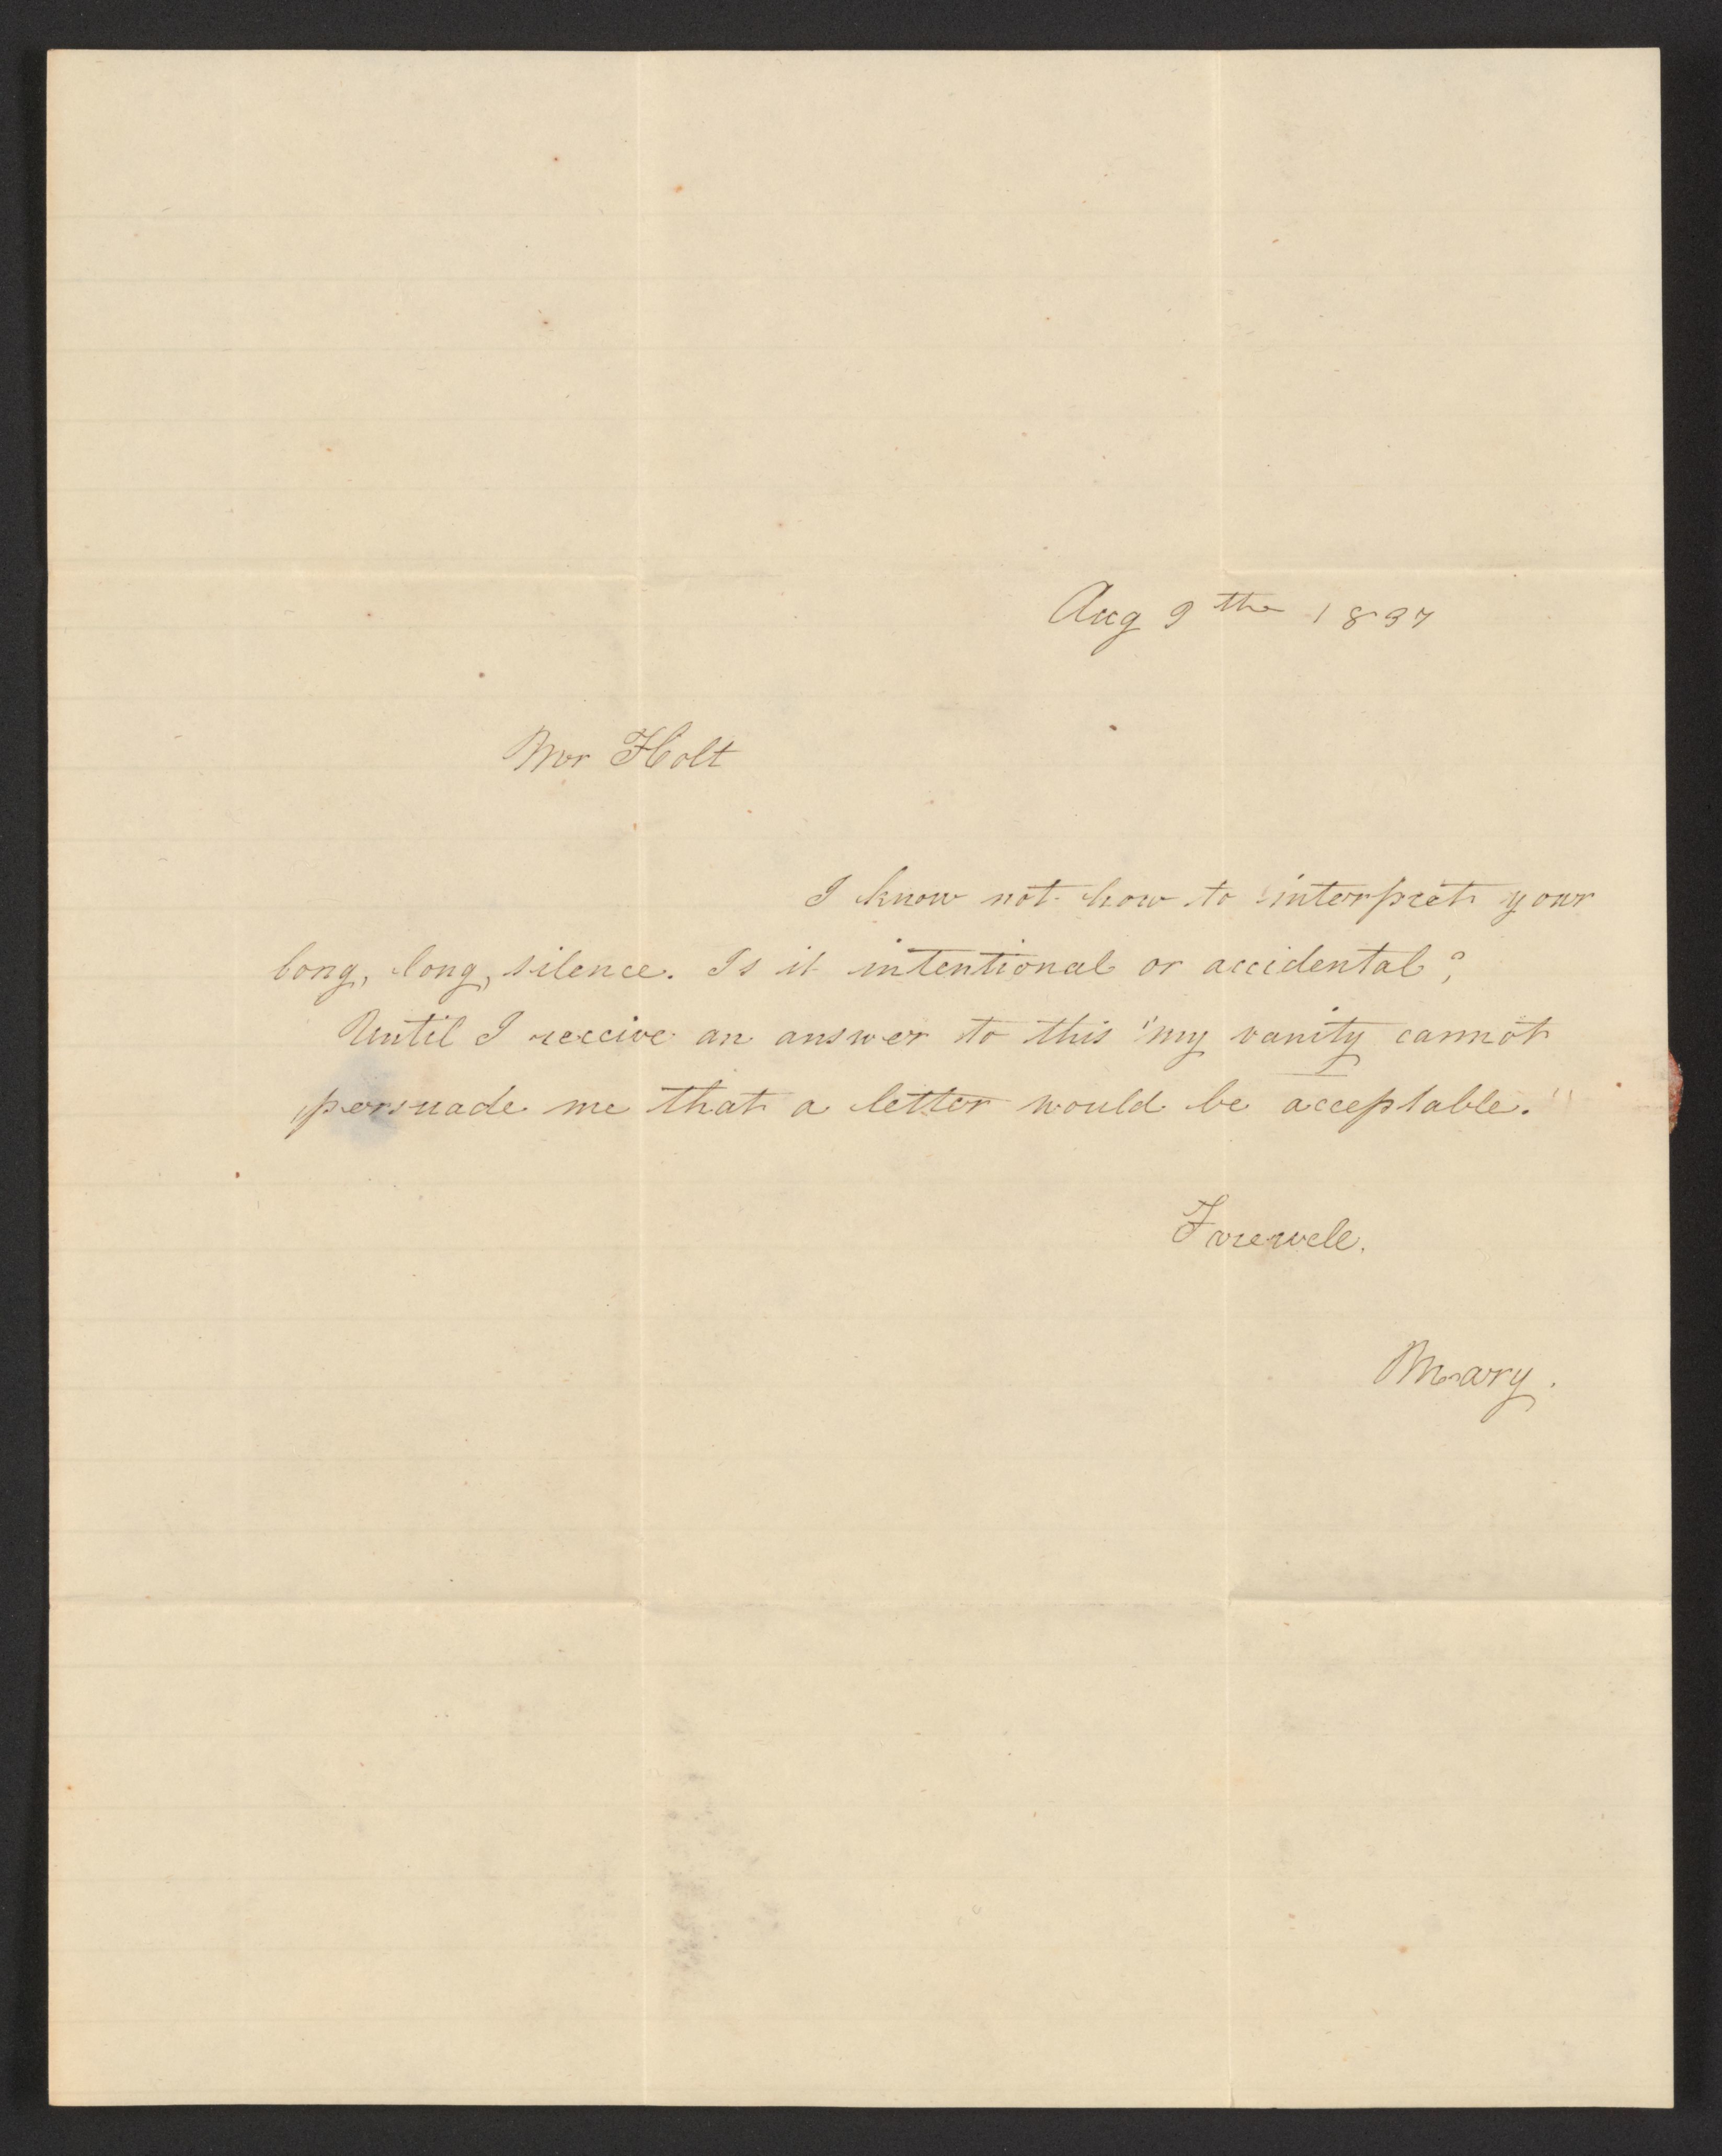 Aug 9th 1837
Mr Holt
I know not how to interpret your
long, long, silence. Is it intentional or accidental?
Until I receive an answer to this "my vanity cannot
persuade me that a letter would be acceptable."
Farewell.
Mary.